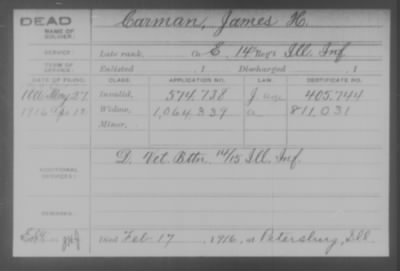 DEAD Carman, James H.
NAME OF SOLDIER:
SERVICE: Late rank, Co. E, 14 Reg't Ill. Inf.
TERM OF SERVICE: Enlisted , 1 Discharged , 1
DATE OF FILING. CLASS. APPLICATION NO. LAW. CERTIFICATE NO.
May 27 Invalid, 574,738 405,744
1916 Apr Widow, 1,064,339 811,031
Minor,
ADDITIONAL SERVICES: D. Vet. Battn. 14/15 Ill. Inf.
REMARKS:
Died Feb. 17, 1916, at Petersburg, Ill.